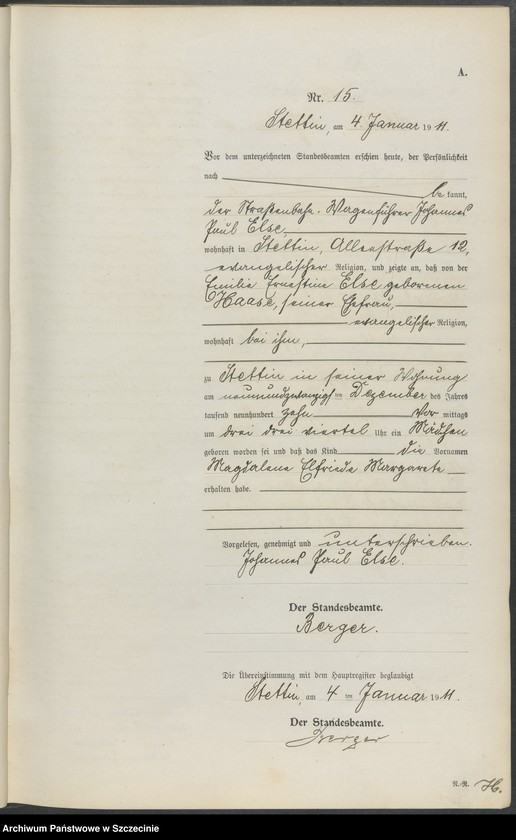 A.
Nr. 15.
Stettin, am 4. Januar 1911.
Vor dem unterzeichneten Standesbeamten erschien heute, der Persönlichkeit
nach
be kannt,
der Straßenbahn-Wagenführer Johannes
Paul Else,
wohnhaft in Stettin, Alleestraße 12,
evangelischer Religion, und zeigte an, daß von der
Emilie Ernestine Else geborenen
Haase, seiner Ehefrau,
evangelischer Religion,
wohnhaft bei ihm,
zu Stettin in seiner Wohnung
am neunundzwanzigsten Dezember des Jahres
tausend neunhundert zehn Vor mittags
um drei drei viertel Uhr ein Mädchen
geboren worden sei und daß das Kind die Vornamen
Magdalene Elfriede Margarete
erhalten habe.
Vorgelesen, genehmigt und unterschrieben.
Johannes Paul Else.
Der Standesbeamte.
Berger.
Die Übereinstimmung mit dem Hauptregister beglaubigt
Stettin, am 4 ten Januar 1911.
Der Standesbeamte.
Berger
N.-R. H.
Archiwum Państwowe w Szczecinie